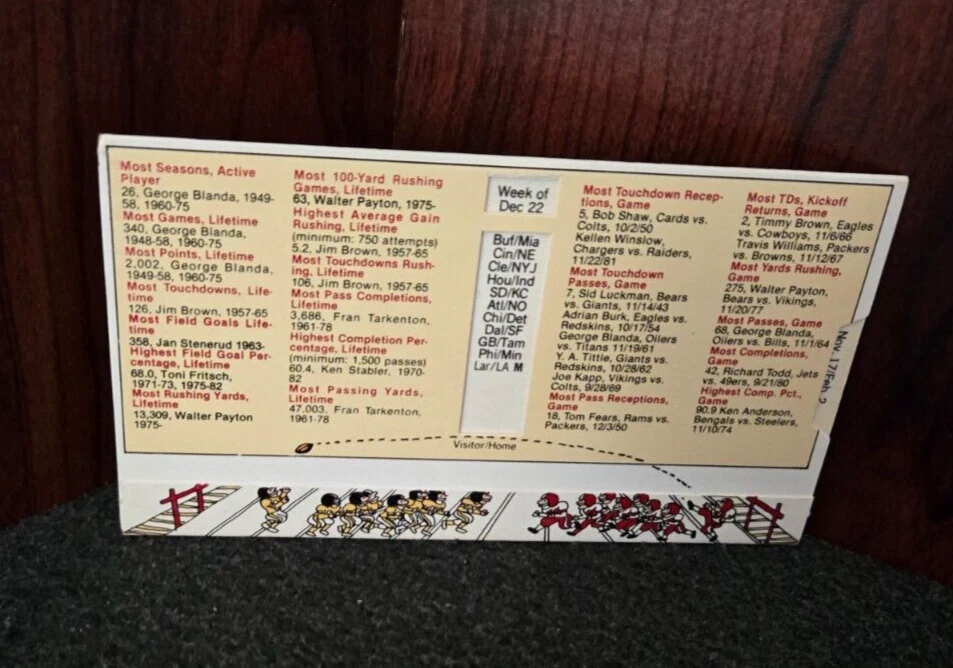 Most Seasons, Active
Player
26, George Blanda, 1949-
58, 1960-75
Most Games, Lifetime
340, George Blanda,
1948-58, 1960-75
Most Points, Lifetime
2,002, George Blanda,
1949-58, 1960-75
Most Touchdowns, Life-
time
126, Jim Brown, 1957-65
Most Field Goals Life-
time
358, Jan Stenerud 1963-
Highest Field Goal Per-
centage, Lifetime
68.0, Toni Fritsch,
1971-73, 1975-82
Most Rushing Yards,
Lifetime
13,309, Walter Payton
1975-
Most 100-Yard Rushing
Games, Lifetime
63, Walter Payton, 1975-
Highest Average Gain
Rushing, Lifetime
(minimum: 750 attempts)
5.2, Jim Brown, 1957-65
Most Touchdowns Rush-
ing, Lifetime
106, Jim Brown, 1957-65
Most Pass Completions,
Lifetime
3,686, Fran Tarkenton,
1961-78
Highest Completion Per-
centage, Lifetime
(minimum: 1,500 passes)
60.4, Ken Stabler, 1970-
82
Most Passing Yards,
Lifetime
47,003, Fran Tarkenton,
1961-78
Week of
Dec 22
Buf/Mia
Cin/NE
Cle/NYJ
Hou/Ind
SD/KC
Atl/NO
Chi/Det
Dal/SF
GB/Tam
Phi/Min
Lar/LA M
Visitor/Home
Most Touchdown Recep-
tions, Game
5, Bob Shaw, Cards vs.
Colts, 10/2/50
Kellen Winslow,
Chargers vs. Raiders,
11/22/81
Most Touchdown
Passes, Game
7, Sid Luckman, Bears
vs. Giants, 11/14/43
Adrian Burk, Eagles vs.
Redskins, 10/17/54
George Blanda, Oilers
vs. Titans 11/19/61
Y. A. Tittle, Giants vs.
Redskins, 10/28/62
Joe Kapp, Vikings vs.
Colts, 9/28/69
Most Pass Receptions,
Game
18, Tom Fears, Rams vs.
Packers, 12/3/50
Most TDs, Kickoff
Returns, Game
2, Timmy Brown, Eagles
vs. Cowboys, 11/6/66
Travis Williams, Packers
vs. Browns, 11/12/67
Most Yards Rushing,
Game
275, Walter Payton,
Bears vs. Vikings,
11/20/77
Most Passes, Game
68, George Blanda,
Oilers vs. Bills, 11/1/64
Most Completions,
Game
42, Richard Todd, Jets
vs. 49ers, 9/21/80
Highest Comp. Pct.,
Game
90.9 Ken Anderson,
Bengals vs. Steelers,
11/10/74
Nov. 17/Feb. 2